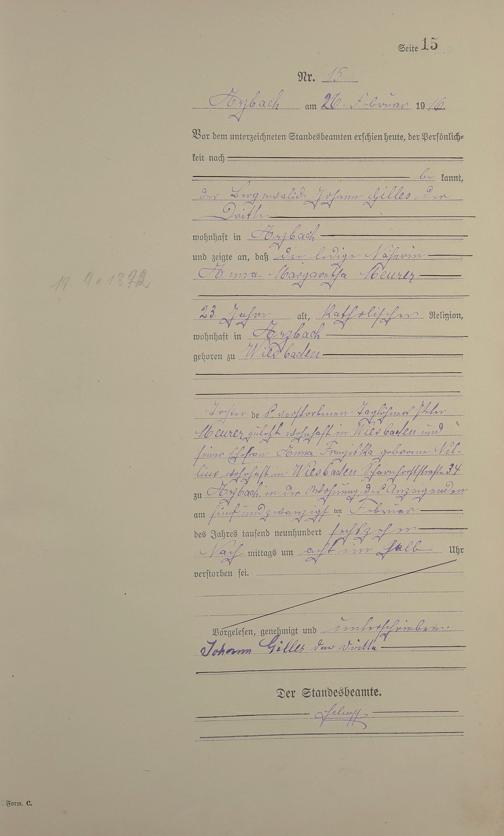 Seite 15
Nr. 15
Arzbach am 26. Februar 1916
Vor dem unterzeichneten Standesbeamten erschien heute, der Persönlich-
keit nach
be kannt,
der Berginvalide Johann Gilles der
Dritte
wohnhaft in Arzbach
und zeigte an, daß die ledige Näherin
Anna Margaretha Meurer
23 Jahre alt, katholischer Religion,
wohnhaft in Arzbach
geboren zu Wiesbaden
Tochter des verstorbenen Taglöhners Peter
Meurer zuletzt wohnhaft in Wiesbaden und
seiner Ehefrau Anna geborene
wohnhaft in Wiesbaden Scharnhorststraße 34
zu Arzbach in der Wohnung des Anzeigenden
am fünfundzwanzigsten Februar
des Jahres tausend neunhundert sechzehn
Nach mittags um acht ein halb Uhr
verstorben sei.
Vorgelesen, genehmigt und unterschrieben
Johann Gilles der Dritte
Der Standesbeamte.
Form. C.